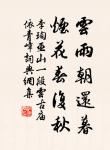 雲雨朝還暮
煙花春復秋
李珣巫山一段雲古廟
依青嶂詞典網集